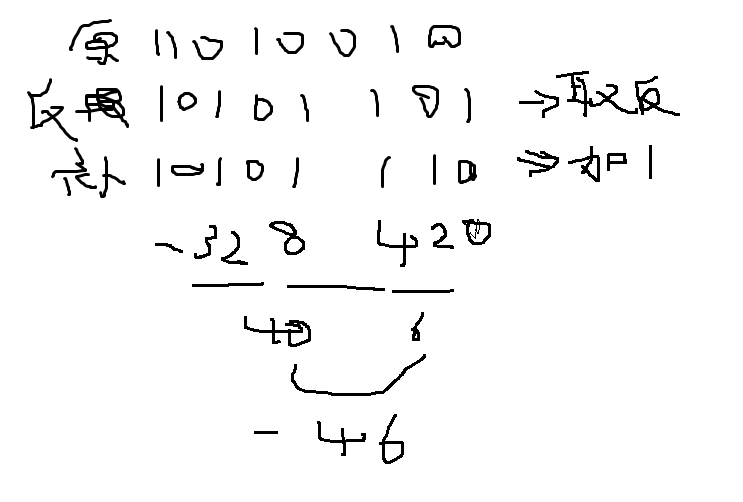 原 11010010
反 10101101 →取反
补 10101110 ⇒加1
-32 8 420
40 6
-46